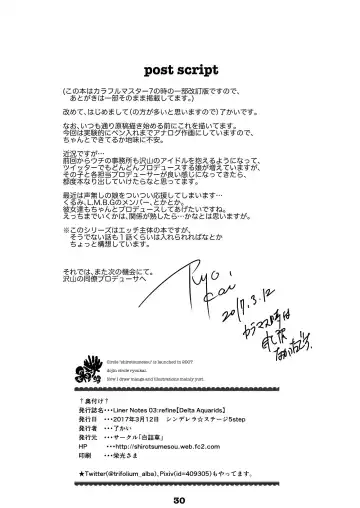 post script
(この本はカラフルマスター7の時の一部改訂版ですので、
あとがきは一部そのまま掲載してます。)
改めて、はじめまして(の方が多いと思いますので)了かいです。
なお、いつも通り原稿描き始める前にこれを描いてます。
今回は実験的にペン入れまでアナログ作画にしていますので、
ちゃんとできてるか地味に不安。
近況ですが…
前回からウチの事務所も沢山のアイドルを抱えるようになって、
ツイッターでもどんどんプロデュースする娘が増えていますが、
その子と各担当プロデューサーが良い感じになってきてたら、
都度本なり出していけたらなと思ってます。
最近は声無しの娘をついつい応援してしまいます…
くるみ、L.M.B.Gのメンバー、とかとか。
彼女達もちゃんとプロデュースしてあげたいですね。
えっちまでいくかは、関係が熟したら…かなとは思いますが。
※このシリーズはエッチ主体の本ですが、
そうでない話も1話くらいは入れられればなとか
ちょっと構想しています。
それでは、また次の機会にて。
沢山の同僚プロデューサへ
Ryo
Kai
2017.3.12
Circle "shirotsumesou" is launched in 2007
dojin circle ryoukai.
Now I draw manga and illustrations mainly yuri.
↑奥付け↑
発行誌名・・・Liner Notes 03:refine【Delta Aquarids】
発行日 ・・・2017年3月12日 シンデレラ☆ステージ5step
発行者 ・・・了かい
発行元 ・・・サークル「白詰草」
HP ・・・http://shirotsumesou.web.fc2.com
印刷 ・・・栄光さま
★Twitter(@trifolium_alba)、Pixiv(id=409305)もやってます。
30